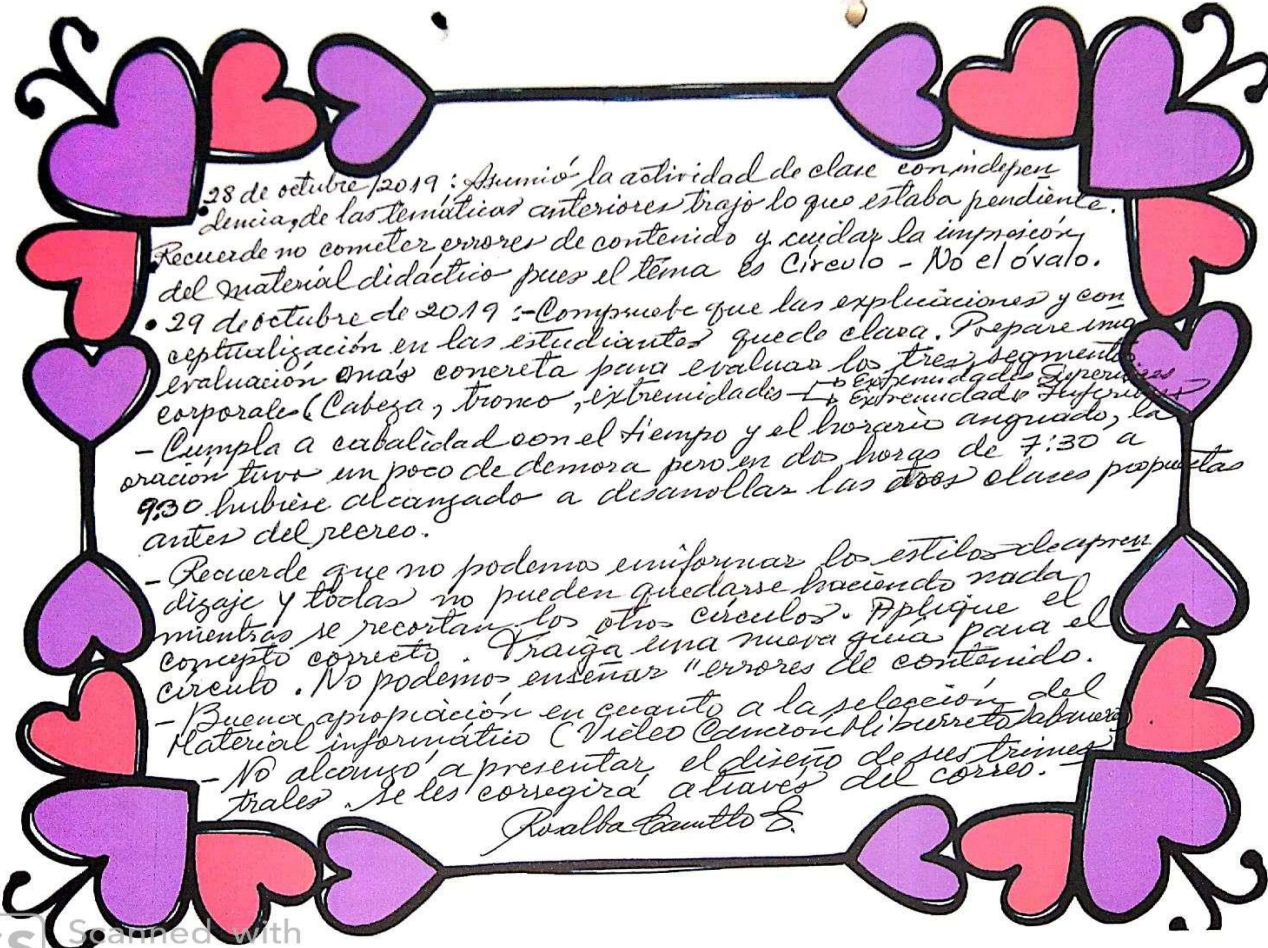 • 28 de octubre/2019: Asumió la actividad de clase con indepen
dencia, de las temáticas anteriores trajo lo que estaba pendiente.
Recuerde no cometer errores de contenido y cuidar la impresión
del material didáctico pues el tema es Círculo - No el óvalo.
• 29 de octubre de 2019:- Compruebe que las explicaciones y con
ceptualización en las estudiantes quede clara. Prepare una
evaluación más concreta para evaluar los tres segmentos
corporales (Cabeza, tronco, extremidades → Extremidades Superiores
→ Extremidades Inferiores
- Cumpla a cabalidad con el tiempo y el horario asignado, la
oración tuvo un poco de demora pero en dos horas de 7:30 a
9:30 hubiese alcanzado a desarrollar las dos clases propuestas
antes del recreo.
- Recuerde que no podemos uniformar los estilos de apren
dizaje y todas no pueden quedarse haciendo nada
mientras se recortan los otros círculos. Aplique el
concepto correcto. Traiga una nueva guía para el
círculo. No podemos enseñar "errores de contenido.
- Buena apropiación en cuanto a la selección del
Material informático (Video Canción Mi burrito Sabanero
- No alcanzó a presentar el diseño de sus trimes
trales. Se les corregirá a través del correo.
Rosalba E.
Scanned with